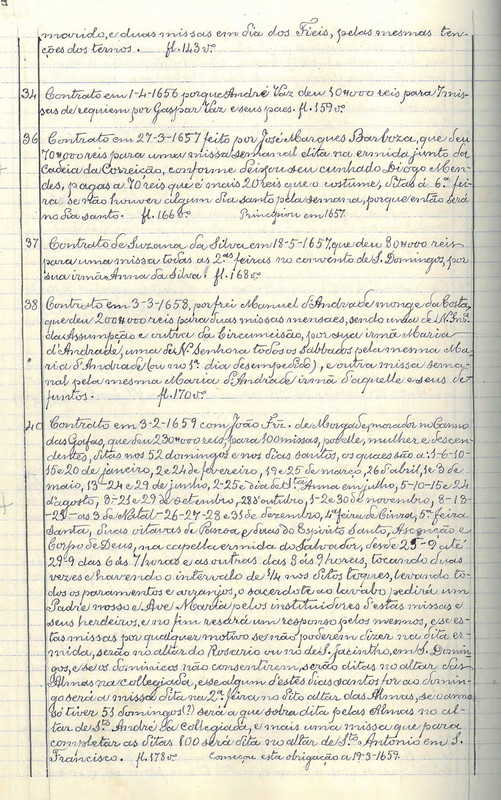 marido, e duas missas em dia dos Fieis, pelas mesmas ten-
ções dos ternos. fl. 143vº
34 Contrato em 1-4-1656 porque André Vaz deu 10#000 reis para 7 mis-
sas de requiem por Gaspar Vaz e seus paes. fl. 159vº
36 Contrato em 27-3-1657 feito por José Marques Barboza, que deu
70#000 reis para uma missa semanal dita na ermida junto da
Cadeia da Correição, conforme deixou seu cunhado Diogo Men-
des, pagas a 70 reis que é mais 20 reis que o costume, ditas á 6ª fei-
ra se não houver algum dia santo pela semana, porque então será
no dia santo. fl. 166vº Principiou em 1657.
37 Contrato de Suzana da Silva em 18-5-1657, que deu 80#000 reis
para uma missa todas as 2as feiras no convento de S. Domingos, por
sua irmã Anna da Silva. fl. 168vº
38 Contrato em 3-3-1658, por frei Manuel d'Andrade monge da Costa,
que deu 200#000 reis para duas missas mensaes, sendo uma de
da Assumpção e outra da Circumcisão, por sua irmã Maria
d'Andrade, uma de Nª Senhora todos os sabbados pela mesma Ma-
ria d'Andrade (ou no 1º dia desempedido), e outra missa sema-
nal pela mesma Maria d'Andrade irmã d'aquelle e seus de-
funtos. fl. 170vº
40 Contrato em 3-2-1659 com João de Morgade, morador no Canno
das Gafas, que deu 230#000 reis, para 100 missas, por elle, mulher e descen-
dentes, ditas nos 52 domingos e nos dias santos, os quaes são a: 1-6-10-
15 e 20 de janeiro, 2 e 24 de fevereiro, 19 e 25 de março, 26 d'abril, 1 e 3 de
maio, 13-24 e 29 de junho, 2-25 e dia de Stª Anna em julho, 5-10-15 e 24
d'agosto, 8-21 e 29 de setembro, 28 d'outubro, 1-2 e 30 de novembro, 8-13-
-21- as 3 de Natal-26-27-28 e 31 de dezembro, 4ª feira de Cinza, 5ª feira
Santa, duas oitavas de Pascoa e duas do Espirito Santo, Ascenção e
Corpo de Deus, na capella ermida do Salvador, desde 25-9 até
29-9 das 6 ás 7 horas e as outras das 8 ás 9 horas, tocando duas
vezes e havendo o intervalo de 1/4 nos ditos toques, levando to-
dos os paramentos e arranjos, o sacerdote ao lavabo pedirá um
Padre nosso e Ave Maria pelos instituidores d'estas missas e
seus herdeiros, e no fim resará um responso pelos mesmos, e se es-
tas missas por qualquer motivo se não poderem dizer na dita er-
mida, serão no altar do Rosario ou no de S. Jacintho, em S. Domin-
gos, e se os dominicos não consentirem, serão ditas no altar das
Almas na collegiada, e se algum d'estes dias santos for ao domin-
go será a missa dita na 2ª feira no dito altar das Almas, se o anno
só tiver 51 domingos (?) será a que sobra dita pelas Almas no al-
tar de Stº André da Collegiada, e mais uma missa que para
completar as ditas 100 será dita no altar de Stº Antonio em S.
Francisco. fl. 178vº Começou esta obrigação a 19-3-1659.